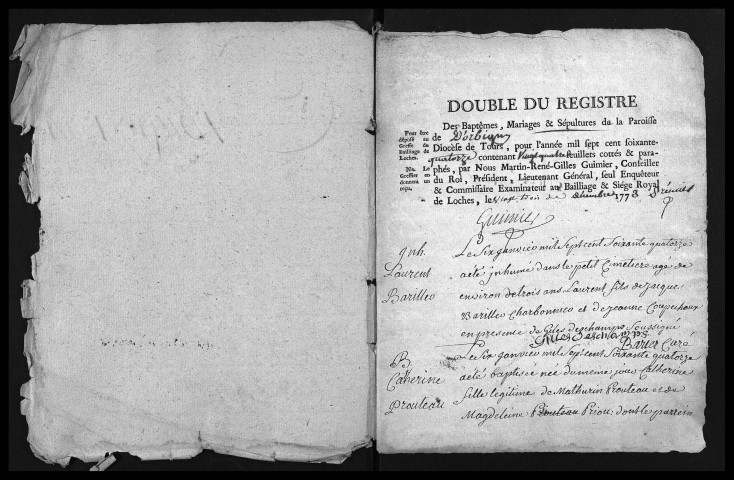 DOUBLE DU REGISTRE
Des Baptêmes, Mariages & Sépultures de la Paroisse
de Dorbigny
Diocèse de Tours, pour l'année mil sept cent soixante-
quatorze contenant vingt quatre feuillets cottés & para-
phés, par Nous Martin-René-Gilles Guimier, Conseiller
du Roi, Président, Lieutenant Général, seul Enquêteur
& Commissaire Examinateur au Bailliage & Siége Royal
de Loches, le décembre 1773
Pour être
déposé au
Greffe du
Bailliage de
Loches.
Na. Le
Greffier en
donnera un
reçu.
Guimier
Inh.
Laurent
Barilleo
Le Six Janvier mil Sept cent Soixante quatorze
a été inhumé dans le petit Cimetiere agé de
environ de trois ans Laurent fils de Jacque
Barilleo Charbonnier et de Jeanne Coupechoux
en presence de Giles deschamps Soussigné
Giles Deschamps
Barier Curé
B
Catherine
Prouteau
Le Six Janvier mil Sept cent Soixante quatorze
a été baptisée née du meme jour Catherine
fille legitime de Mathurin Prouteau et de
Magdeleine Priou: double parrein